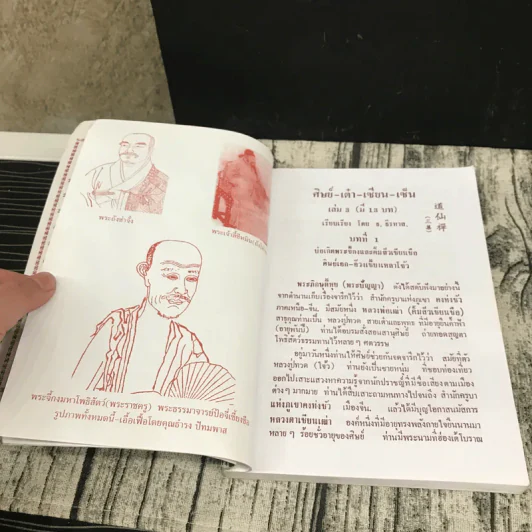 พระถังซำจั๋ง
พระจี้กงมหาโพธิสัตว์(พระราชครู) พระธรรมาจารย์ป๋อจี้เซี้ยงซือ
รูปภาพทั้งหมดนี้-เอื้อเฟื้อโดยคุณธำรง ปัทมพาส
ศิษย์-เต๋า-เซียน-เซ็น
เล่ม ๒ (มี 13 บท)
道仙禪
เรียบเรียง โดย ธ. ธีรทาส.
บทที่ 1
บ่อเกิดพระเซ็นและคัมภีร์เซียนเซ็น
ศิษย์เธอ-
พระภิกษุ (พระปัญญา) ดังได้สดับฟังมาอย่างนี้
จากตำนานเก็บเรื่องจารึกไว้ว่า สำนักครูบาแห่งภูเขา คงท้งซัว
ภาคเหนือ-จีน. มีสมัยหนึ่ง หลวงพ่อเฒ่า
สาธุคุณท่านเป็น หลวงปู่ทวด สายเต๋าและพุทธ ที่มีอายุยืนค้ำฟ้า
(อายุพันปี) ท่านได้อบรมสั่งสอนสานุศิษย์
โพธิสัตว์ธรรมทานไว้หลาย ๆ ศตวรรษ
อยู่มาวันหนึ่งท่านให้ศิษย์ช่วยกันจดจารึกไว้ว่า สมัยที่ตัว
หลวงปู่ทวด (ไจ้ว) ท่านยังเป็นชายหนุ่ม ที่ชอบท่องเที่ยว
ออกไปเสาะแสวงหาความรู้จากนักปราชญ์ที่มีชื่อเสียงตามเมือง
ต่างๆ มากมาย ท่านได้สืบเสาะถามหนทางไปจนถึง สำนักครูบา
แห่งภูเขาคงท่งซัว เมืองจีน. แล้วได้มีบุญโอกาสนมัสการ
หลวงตาเซียนเฒ่า องค์หนึ่งที่มีอายุทรงพลังกายใจยืนนานมา
หลาย ๆ ร้อยชั่วอายุของศิษย์ ท่านมีพระนามที่ฮ่องเต้โบราณ